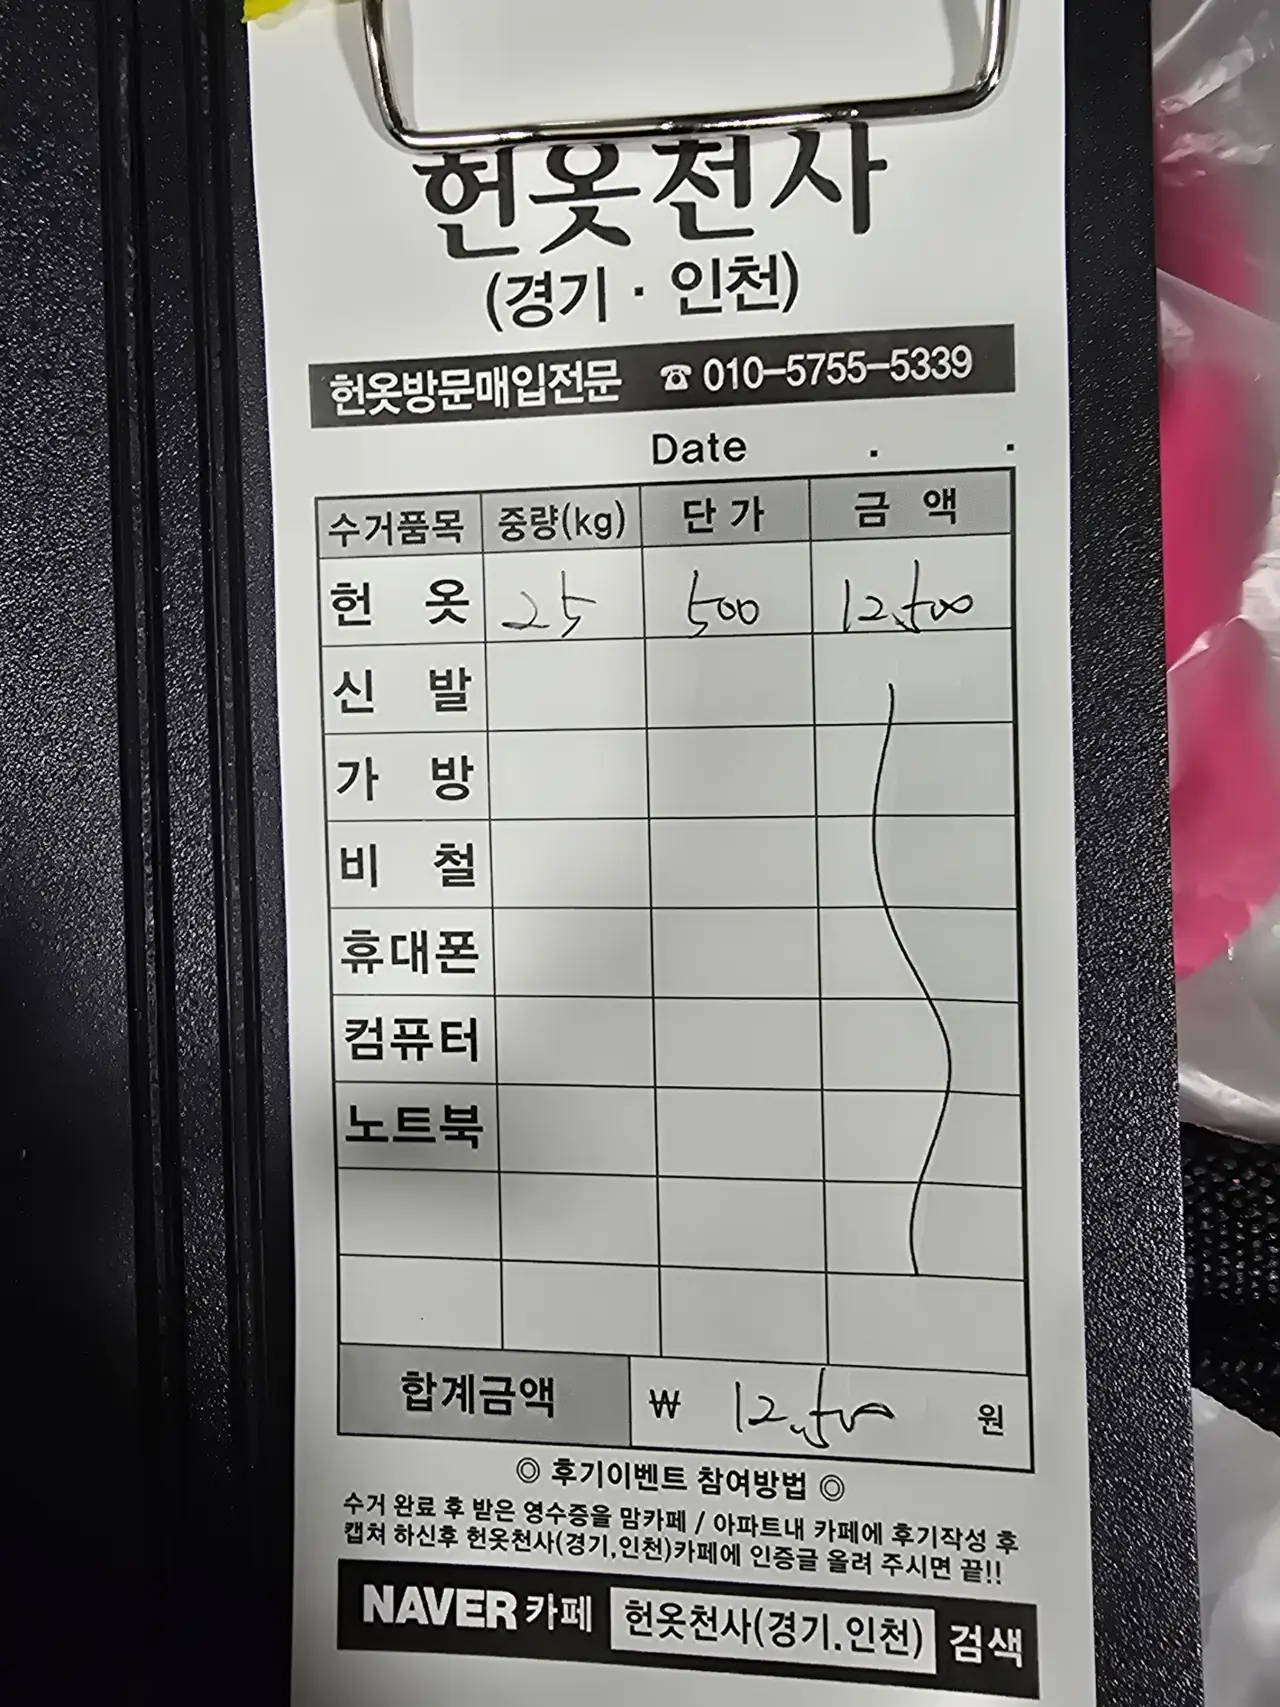 헌옷천사
(경기 · 인천)
헌옷방문매입전문 ☎ 010-5755-5339
Date . .
수거품목 중량(kg) 단 가 금 액
헌 옷 25 500 12,500
신 발
가 방
비 철
휴대폰
컴퓨터
노트북
합계금액 ₩ 12,500 원
◎ 후기이벤트 참여방법 ◎
수거 완료 후 받은 영수증을 맘카페 / 아파트내 카페에 후기작성 후
캡쳐 하신후 헌옷천사(경기,인천)카페에 인증글 올려 주시면 끝!!
NAVER 카페 헌옷천사(경기.인천) 검색